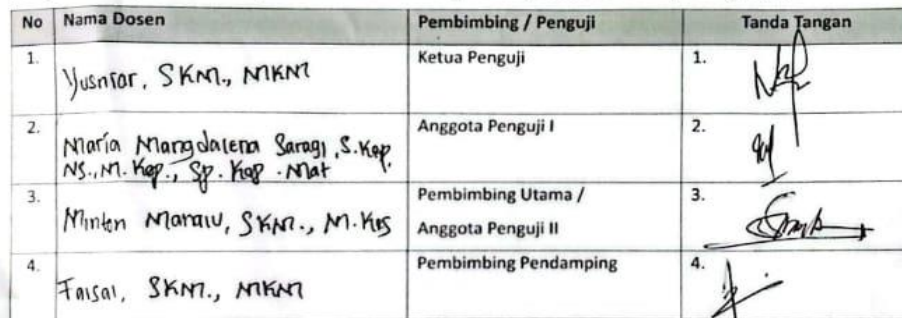 No Nama Dosen Pembimbing / Penguji Tanda Tangan
1. Yusnear, SKM., MKM Ketua Penguji 1.
2. Maria Mangdalena Saragi, S.Kep. Anggota Penguji I 2.
NS., M. Kep., Sp. Kep. Mat
3. Minton Manalu, SKM., M.Kes Pembimbing Utama / 3.
Anggota Penguji II
4. Faisal, SKM., MKM Pembimbing Pendamping 4.